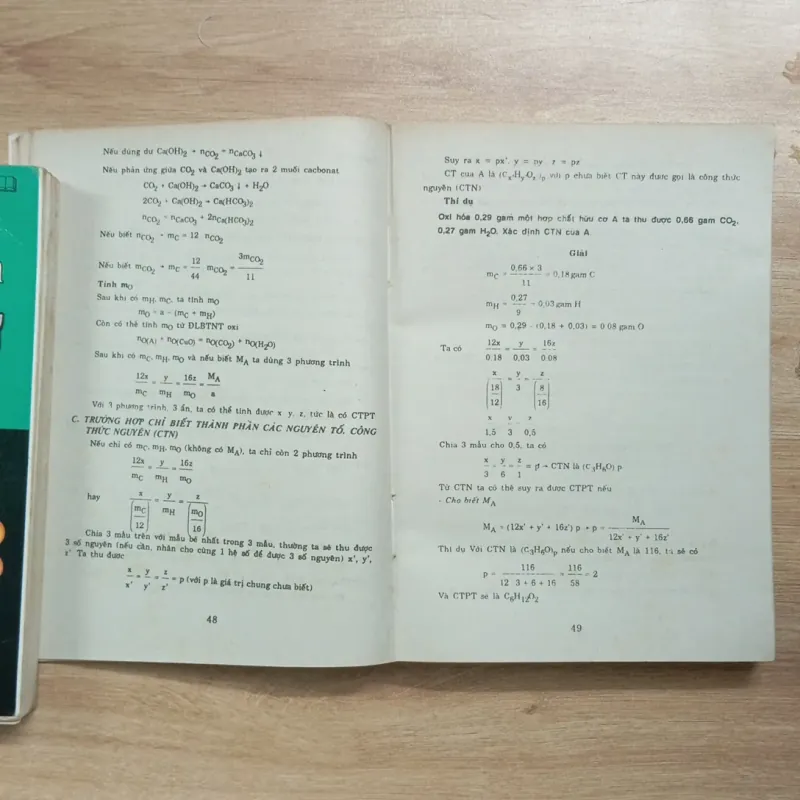 Nếu dùng dư Ca(OH)₂ → nCO₂ = nCaCO₃ ↓
Nếu phản ứng giữa CO₂ và Ca(OH)₂ tạo ra 2 muối cacbonat
CO₂ + Ca(OH)₂ → CaCO₃ ↓ + H₂O
2CO₂ + Ca(OH)₂ → Ca(HCO₃)₂
nCO₂ = nCaCO₃ + 2nCa(HCO₃)₂
Nếu biết nCO₂ → mC = 12 nCO₂
Nếu biết mCO₂ → mC = 12/44 mCO₂ = 3mCO₂/11
Tính mO
Sau khi có mH, mC, ta tính mO
mO = a - (mC + mH)
Còn có thể tính mO từ ĐLBTNT oxi
nO(A) + nO(CuO) = nO(CO₂) + nO(H₂O)
Sau khi có mC, mH, mO và nếu biết MA ta dùng 3 phương trình
12x/mC = y/mH = 16z/mO = MA/a
Với 3 phương trình, 3 ẩn, ta có thể tính được x y, z, tức là có CTPT
C. TRƯỜNG HỢP CHỈ BIẾT THÀNH PHẦN CÁC NGUYÊN TỐ. CÔNG
THỨC NGUYÊN (CTN)
Nếu chỉ có mC, mH, mO (không có MA), ta chỉ còn 2 phương trình
12x/mC = y/mH = 16z/mO
hay x/(mC/12) = y/mH = z/(mO/16)
Chia 3 mẫu trên với mẫu bé nhất trong 3 mẫu, thường ta sẽ thu được
3 số nguyên (nếu cần, nhân cho cùng 1 hệ số để được 3 số nguyên) x', y',
z' Ta thu được
x/x' = y/y' = z/z' = p (với p là giá trị chung chưa biết)
48
Suy ra x = px', y = py z = pz
CT của A là (Cx'Hy'Oz')p với p chưa biết CT này được gọi là công thức
nguyên (CTN)
Thí dụ
Oxi hóa 0,29 gam một hợp chất hữu cơ A ta thu được 0,66 gam CO₂,
0,27 gam H₂O. Xác định CTN của A
Giải
mC = 0,66 × 3/11 = 0,18 gam C
mH = 0,27/9 = 0,03 gam H
mO = 0,29 - (0,18 + 0,03) = 0 08 gam O
Ta có 12x/0 18 = y/0,03 = 16z/0 08
x/(18/12) = y/3 = z/(8/16)
x/1,5 y/3 z/0,5
Chia 3 mẫu cho 0,5, ta có
x/3 = y/6 = z/1 = p → CTN là (C₃H₆O) p
Từ CTN ta có thể suy ra được CTPT nếu
- Cho biết MA
MA = (12x' + y' + 16z') p → p = MA/(12x' + y' + 16z')
Thí dụ Với CTN là (C₃H₆O)p nếu cho biết MA là 116, ta sẽ có
p = 116/(12 3 + 6 + 16) = 116/58 = 2
Và CTPT sẽ là C₆H₁₂O₂
49